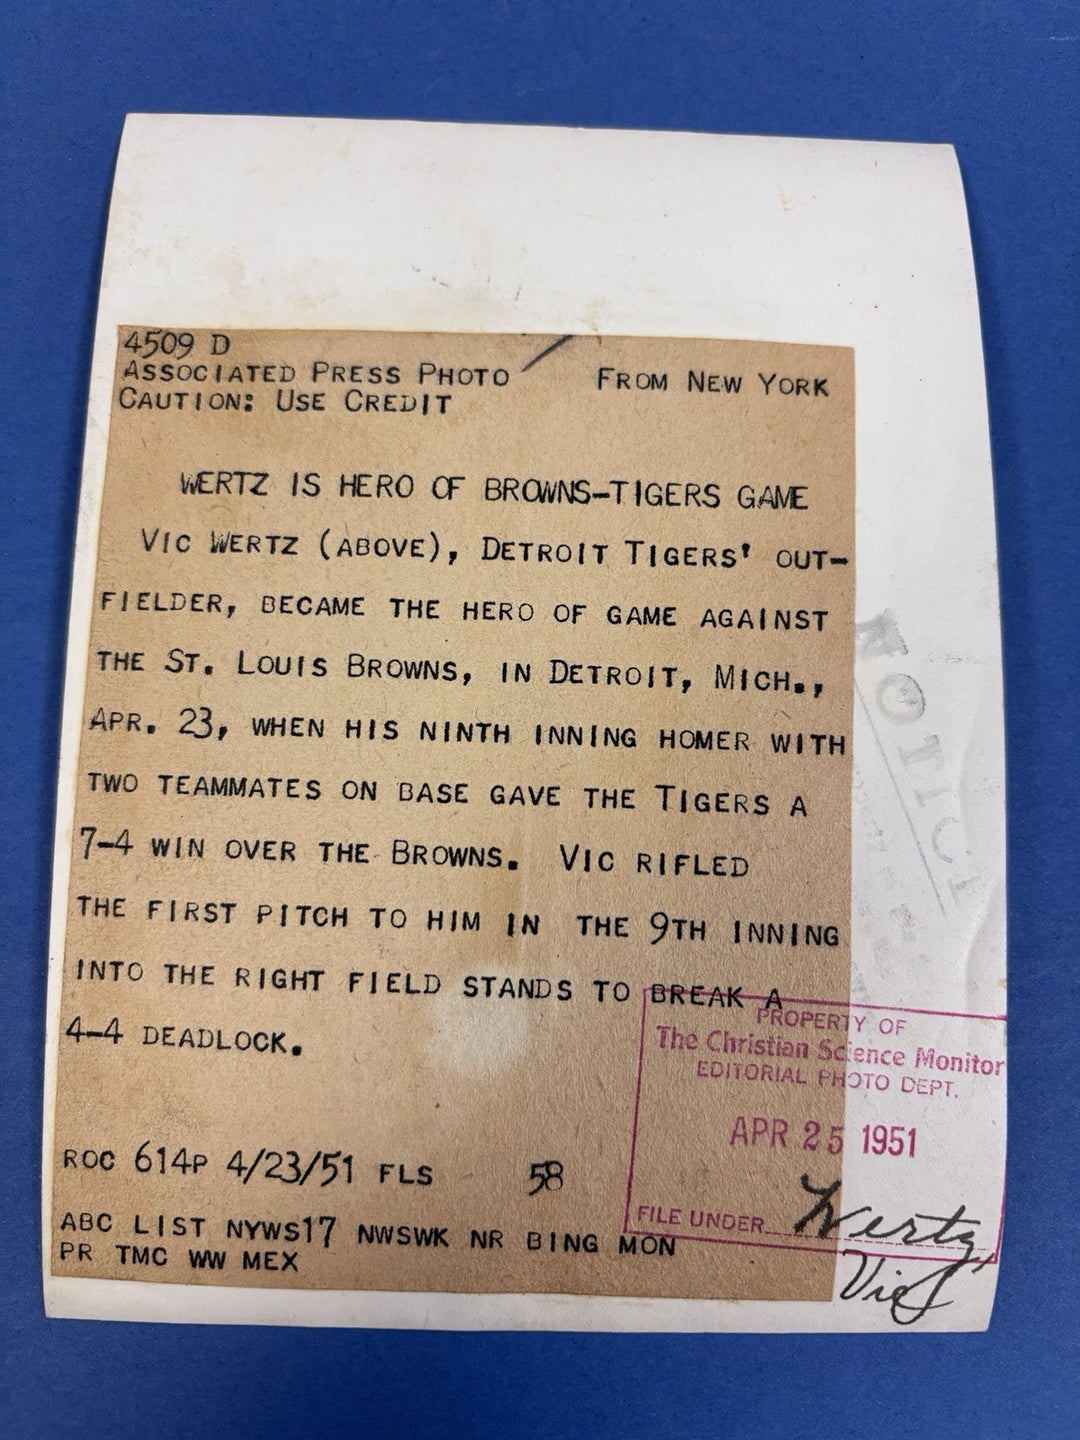 4509 D
ASSOCIATED PRESS PHOTO FROM NEW YORK
CAUTION: USE CREDIT
WERTZ IS HERO OF BROWNS-TIGERS GAME
VIC WERTZ (ABOVE), DETROIT TIGERS' OUT-
FIELDER, BECAME THE HERO OF GAME AGAINST
THE ST. LOUIS BROWNS, IN DETROIT, MICH.,
APR. 23, WHEN HIS NINTH INNING HOMER WITH
TWO TEAMMATES ON BASE GAVE THE TIGERS A
7-4 WIN OVER THE BROWNS. VIC RIFLED
THE FIRST PITCH TO HIM IN THE 9TH INNING
INTO THE RIGHT FIELD STANDS TO BREAK A
4-4 DEADLOCK.
ROC 614P 4/23/51 FLS 58
ABC LIST NYWS17 NWSWK NR BING MON
PR TMC WW MEX
NOTICE
PROPERTY OF
The Christian Science Monitor
EDITORIAL PHOTO DEPT.
APR 25 1951
FILE UNDER Wertz,
Vic